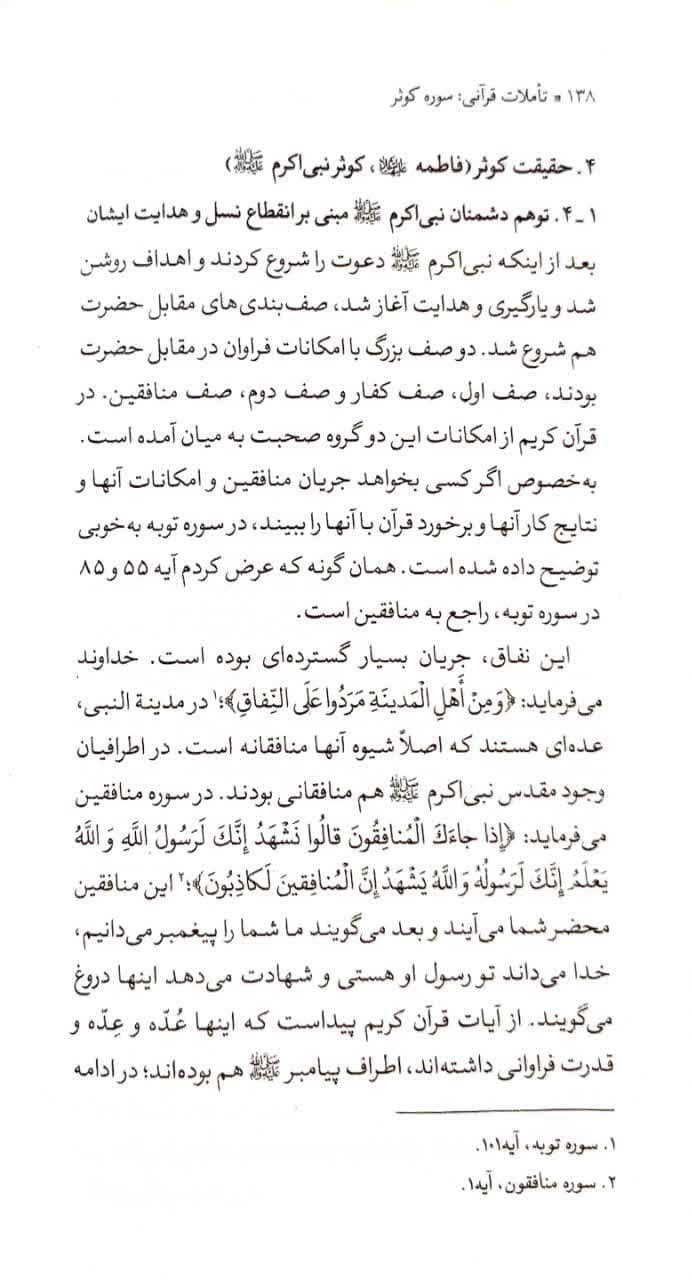 ۱۳۸ ■ تأملات قرآنی: سوره کوثر
۴. حقیقت کوثر (فاطمه علیها السلام، کوثر نبی‌اکرم ﷺ)
۱ـ۴. توهم دشمنان نبی‌اکرم ﷺ مبنی بر انقطاع نسل و هدایت ایشان
بعد از اینکه نبی‌اکرم ﷺ دعوت را شروع کردند و اهداف روشن
شد و یارگیری و هدایت آغاز شد، صف‌بندی‌های مقابل حضرت
هم شروع شد. دو صف بزرگ با امکانات فراوان در مقابل حضرت
بودند، صف اول، صف کفار و صف دوم، صف منافقین. در
قرآن کریم از امکانات این دو گروه صحبت به میان آمده است.
به‌خصوص اگر کسی بخواهد جریان منافقین و امکانات آنها و
نتایج کار آنها و برخورد قرآن با آنها را ببیند، در سوره توبه به‌خوبی
توضیح داده شده است. همان گونه که عرض کردم آیه ۵۵ و ۸۵
در سوره توبه، راجع به منافقین است.
این نفاق، جریان بسیار گسترده‌ای بوده است. خداوند
می‌فرماید: ﴿وَ مِنْ أَهْلِ الْمَدينَةِ مَرَدُوا عَلَى النِّفاقِ﴾؛۱ در مدینة النبی،
عده‌ای هستند که اصلاً شیوه آنها منافقانه است. در اطرافیان
وجود مقدس نبی‌اکرم ﷺ هم منافقانی بودند. در سوره منافقین
می‌فرماید: ﴿إِذا جاءَكَ الْمُنافِقُونَ قالُوا نَشْهَدُ إِنَّكَ لَرَسُولُ اللَّهِ وَ اللَّهُ
يَعْلَمُ إِنَّكَ لَرَسُولُهُ وَ اللَّهُ يَشْهَدُ إِنَّ الْمُنافِقينَ لَكاذِبُونَ﴾؛۲ این منافقین
محضر شما می‌آیند و بعد می‌گویند ما شما را پیغمبر می‌دانیم،
خدا می‌داند تو رسول او هستی و شهادت می‌دهد اینها دروغ
می‌گویند. از آیات قرآن کریم پیداست که اینها عُدّه و عِدّه و
قدرت فراوانی داشته‌اند، اطراف پیامبر ﷺ هم بوده‌اند؛ در ادامه
۱. سوره توبه، آیه۱۰۱.
۲. سوره منافقون، آیه۱.